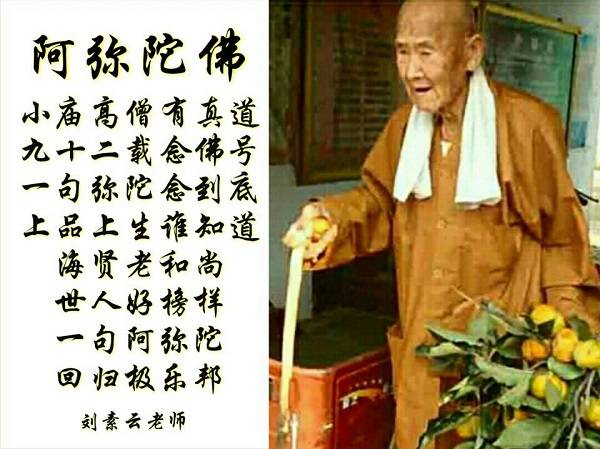 阿弥陀佛
小庙高僧有真道
九十二载念佛号
一句弥陀念到底
上品上生谁知道
海贤老和尚
世人好榜样
一句阿弥陀
回归极乐邦
刘素云老师